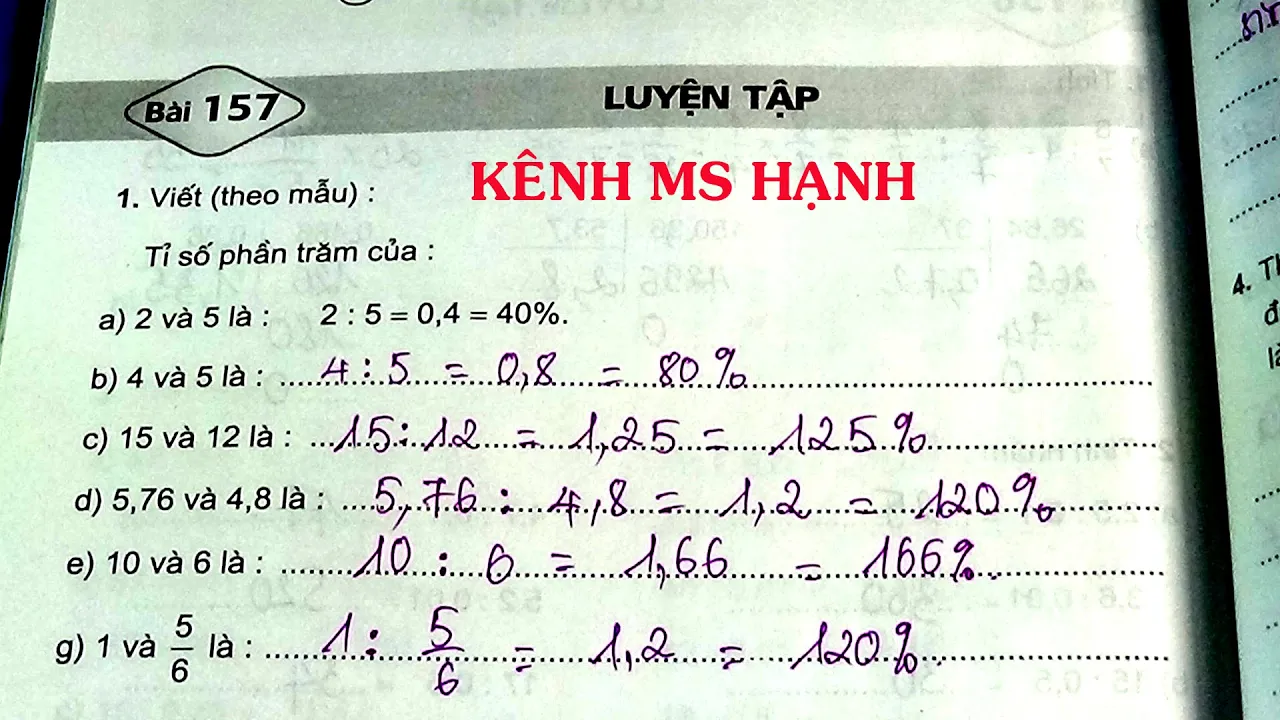 Bài 157
LUYỆN TẬP
KÊNH MS HẠNH
1. Viết (theo mẫu) :
Tỉ số phần trăm của :
a) 2 và 5 là : 2 : 5 = 0,4 = 40%.
b) 4 và 5 là : 4 : 5 = 0,8 = 80%
c) 15 và 12 là : 15 : 12 = 1,25 = 125%
d) 5,76 và 4,8 là : 5,76 : 4,8 = 1,2 = 120%
e) 10 và 6 là : 10 : 6 = 1,66 = 166%.
g) 1 và 5/6 là : 1 : 5/6 = 1,2 = 120%.
4.